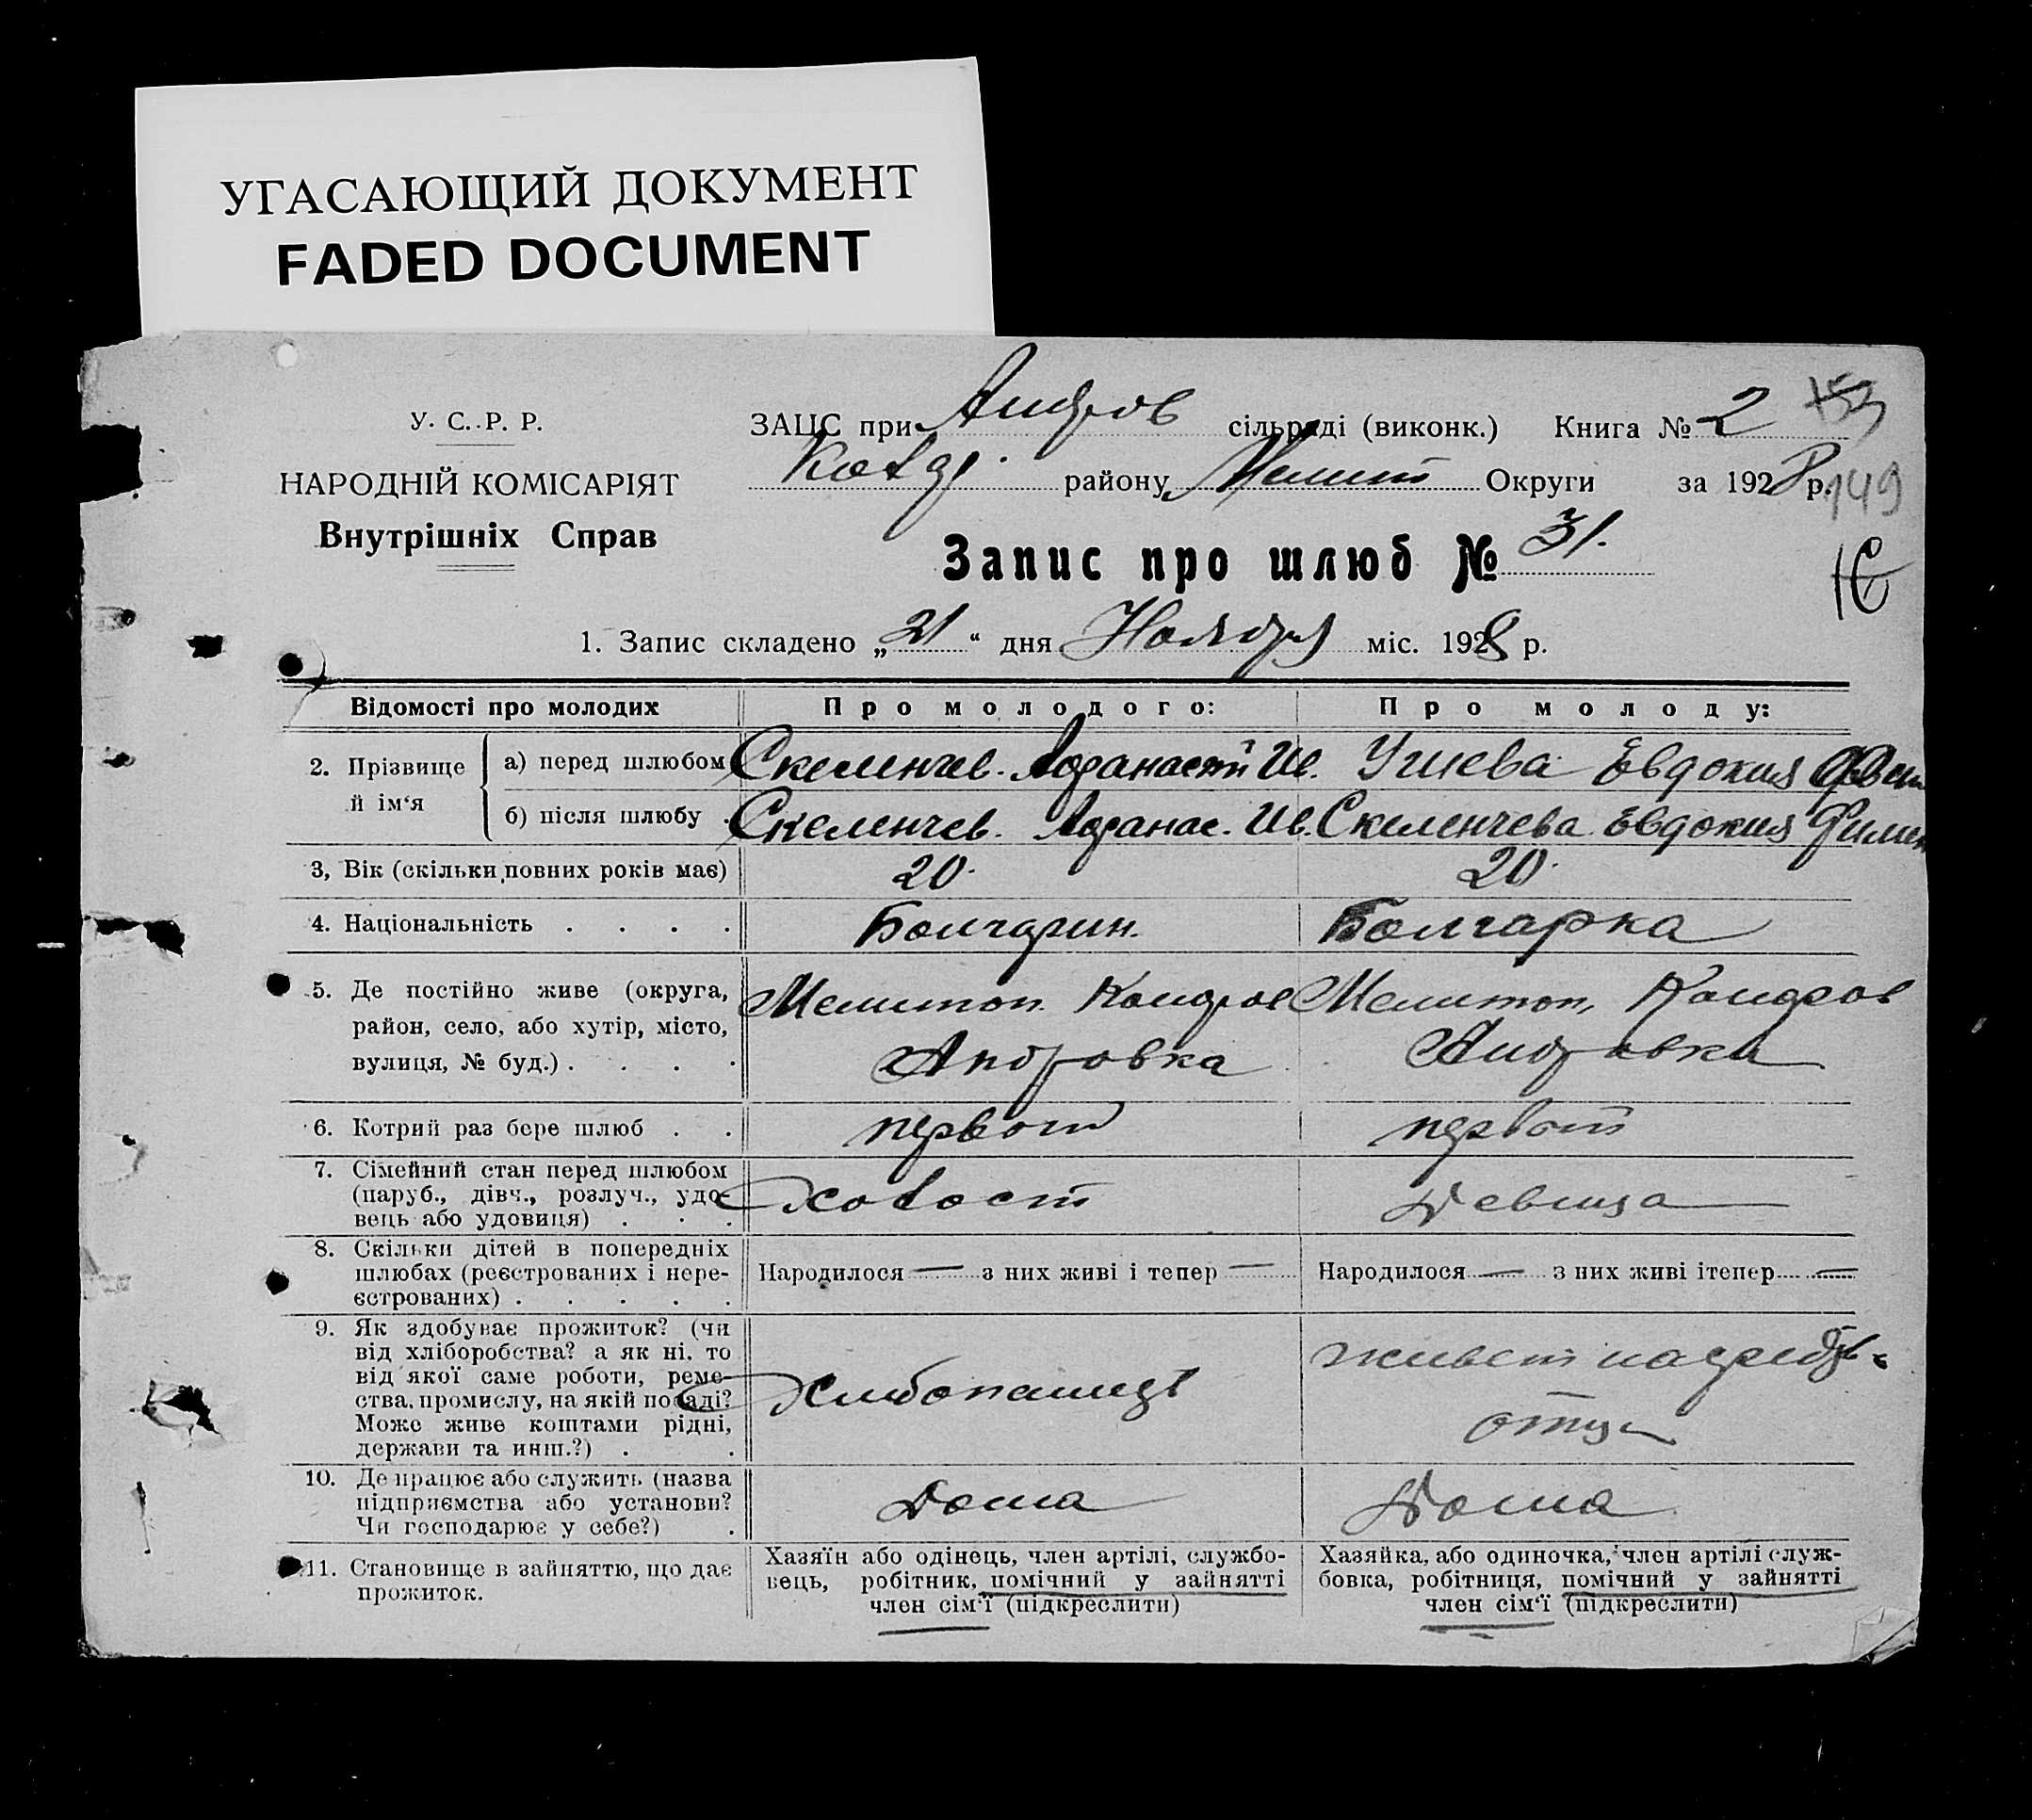 УГАСАЮЩИЙ ДОКУМЕНТ
FADED DOCUMENT
У. С. Р. Р.
НАРОДНІЙ КОМІСАРІЯТ
Внутрішніх Справ
ЗАЦС при Андров сільраді (виконк.) Книга № 2
району Мелит Округи за 1928 р.
149
Запис про шлюб № 31.
1. Запис складено „21“ дня Ноября міс. 1928 р.
Відомості про молодих Про молодого: Про молоду:
2. Прізвище й ім‘я
а) перед шлюбом Скеленчев. Афанасий Ив. Евдокия
б) після шлюбу Скеленчев. Афанас. Ив. Скеленчева Евдокия
3, Вік (скільки повних років має) 20. 20.
4. Національність . . . . Болгарин. Болгарка
5. Де постійно живе (округа, Мелитоп. Колдров Мелитоп. Колдров
район, село, або хутір, місто, Андровка Андровка
вулиця, № буд.) . . . .
6. Котрий раз бере шлюб . . первый первый
7. Сімейний стан перед шлюбом
(паруб., дівч., розлуч., удо- Холост Девица
вець або удовиця) . . .
8. Скільки дітей в попередніх
шлюбах (реєстрованих і нере- Народилося — з них живі і тепер — Народилося — з них живі ітепер —
єстрованих) . . . . .
9. Як здобуває прожиток? (чи
від хліборобства? а як ні, то живет на средств
від якої саме роботи, реме-
ства, промислу, на якій посаді? Хлибопашец
Може живе коштами рідні, отца
держави та инш.?) . .
10. Де працює або служить (назва
підприємства або установи? Дома Дома
Чи господарює у себе?) .
11. Становище в зайняттю, що дає
прожиток.
Хазяїн або одінець, член артілі, службо-
вець, робітник, помічний у зайнятті
член сім‘ї (підкреслити)
Хазяйка, або одиночка, член артілі служ-
бовка, робітниця, помічний у зайнятті
член сім‘ї (підкреслити)